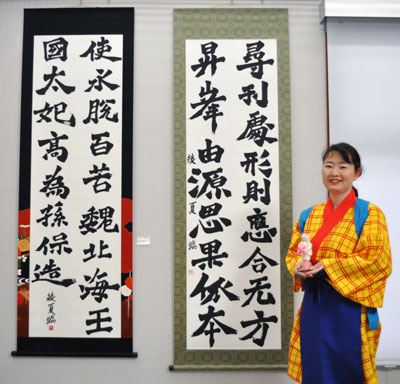 尋刊處形則應合无方
昇峯由源思果依本
夏臨
使永脫百苦魏北海王
國太妃高為孫保造
夏臨